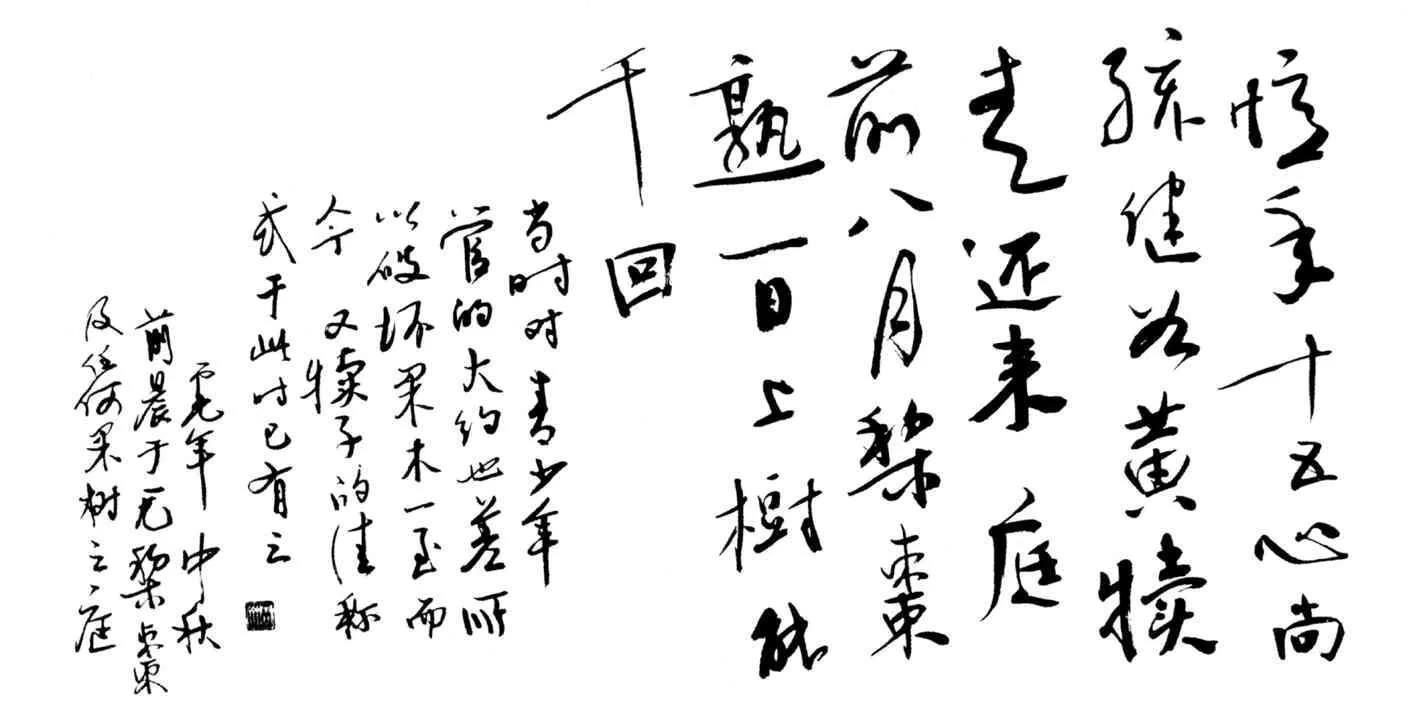 憶年十五心尚
孩健如黄犊
走还来庭
前八月梨棗
熟一日上樹能
千回
当时对青少年
管的大约也差所
以破坏果木一至而
今又犊子的佳称
或于此时已有之
虎年中秋
前晨于无梨棗
及任何果树之庭